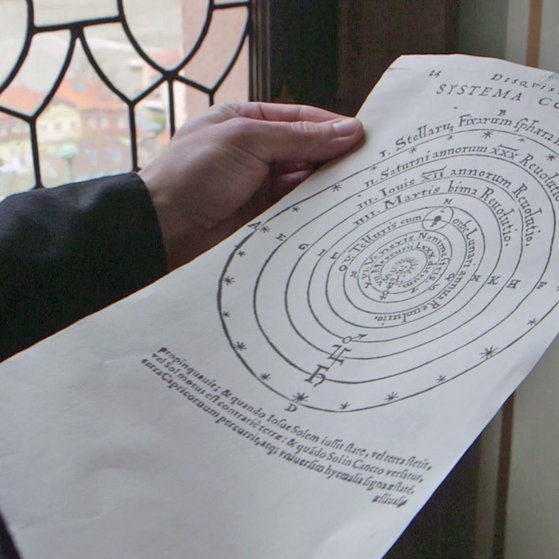 14 Disquis
SYSTEMA C
B
I. Stellarū Fixarum sphæra
II. Saturni annorum XXX Reuolu
III. Iouis XII annorum Reuolutio.
IIII. Martis bima Reuolutio.
V. Telluris cum orbe Lunari annua Reuolutio.
VI. Veneris Nonimestris
A E G I N K H F
D
propinquauis; & quando Iosue Solem iussit stare, vel terra stetit,
vel Sol motus est contrariò terræ: & quādo Sol in Cancro versatur,
terra Capricornum percurrit, atq; vniuersim hyemalia signa æstate,
æstiualia